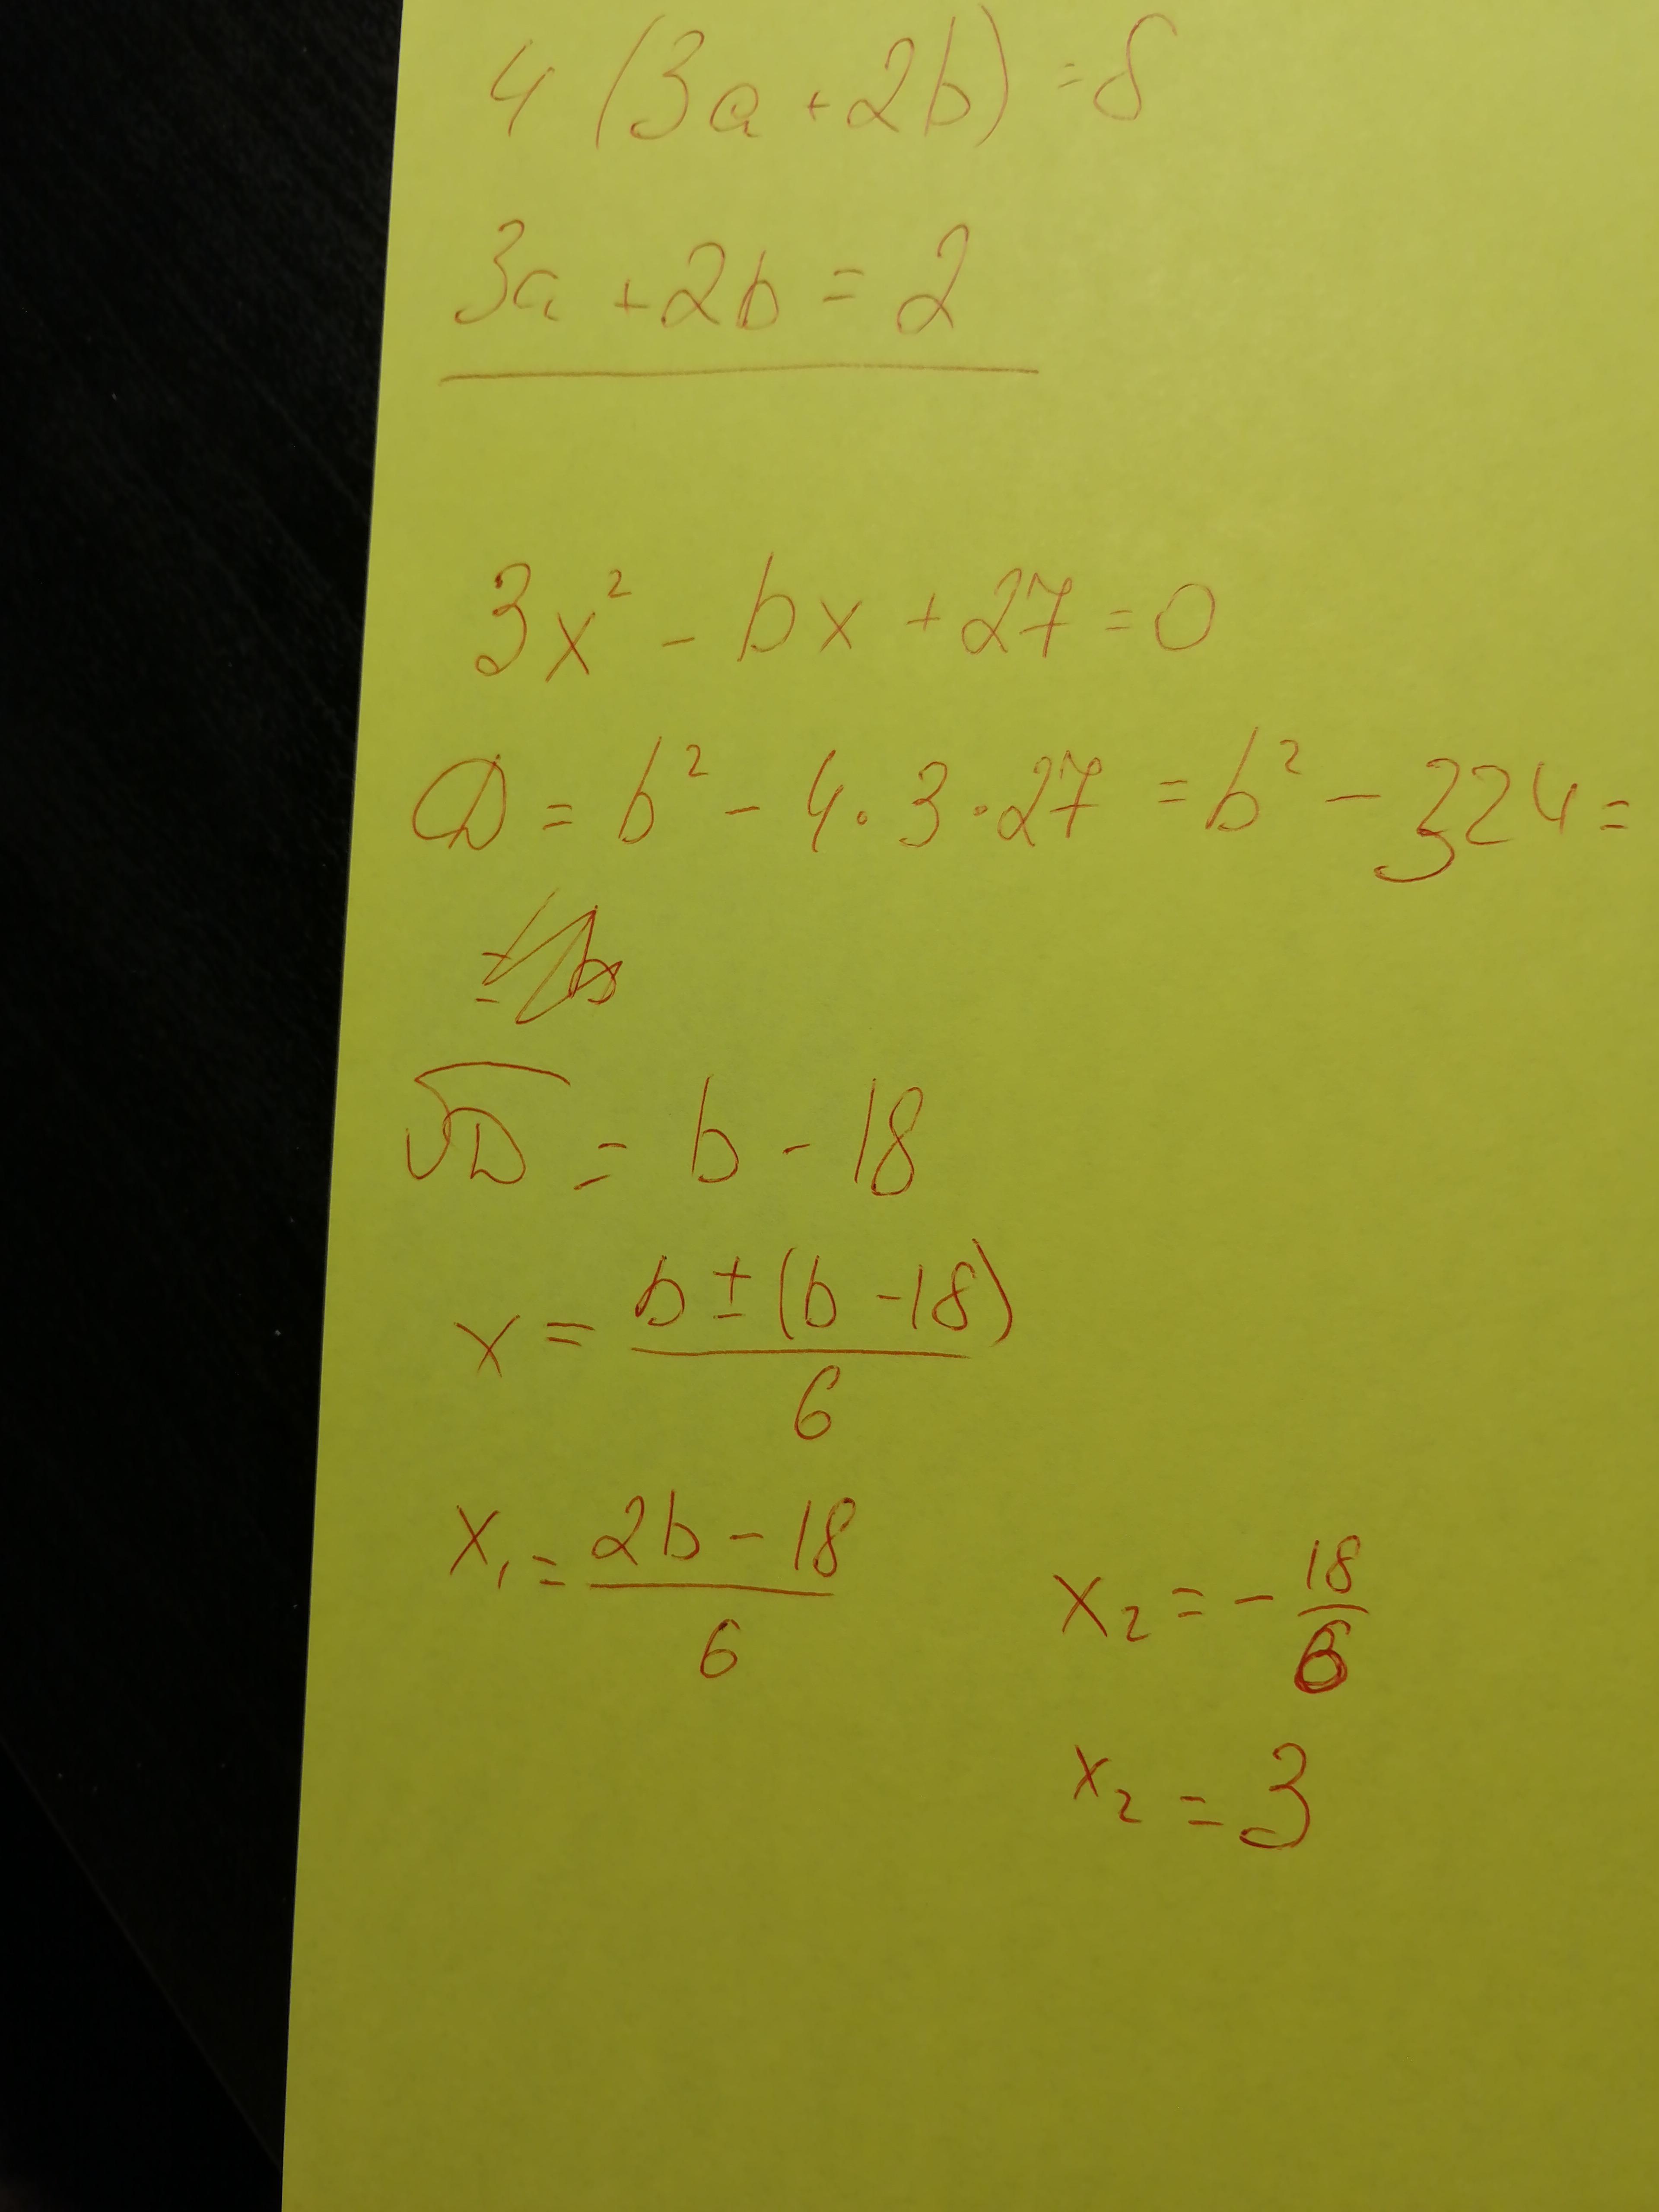 4 (3a + 2b) = 8
3a + 2b = 2
3x² - bx + 27 = 0
D = b² - 4 · 3 · 27 = b² - 324 =
√D = b - 18
x = b ± (b - 18) / 6
x₁ = 2b - 18 / 6
x₂ = - 18 / 6
x₂ = 3